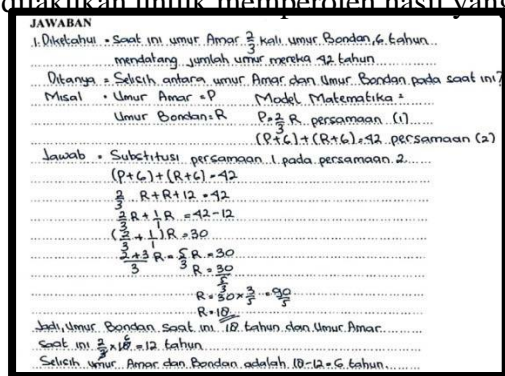 dilakukan untuk memperoleh hasil yang
JAWABAN
1. Diketahui = Saat ini umur Amar 2/3 kali umur Bondan, 6 tahun
mendatang jumlah umur mereka 42 tahun
Ditanya = Selisih antara umur Amar dan Umur Bondan pada saat ini?
Misal • Umur Amar = P Model Matematika =
Umur Bondan = R P = 2/3 R persamaan (1)
(P+6)+(R+6) = 42 persamaan (2)
Jawab • Substitusi persamaan 1 pada persamaan 2
(P+6)+(R+6) = 42
2/3 R + R + 12 = 42
2/3 R + 1/1 R = 42 - 12
(2/3 + 1/1) R = 30
2+3/3 R = 5/3 R = 30
R = 30/(5/3)
R = 30 × 3/5 = 90/5
R = 18
Jadi, Umur Bondan saat ini 18 tahun dan Umur Amar
saat ini 2/3 × 18 6 = 12 tahun
Selisih umur Amar dan Bondan adalah 18-12 = 6 tahun